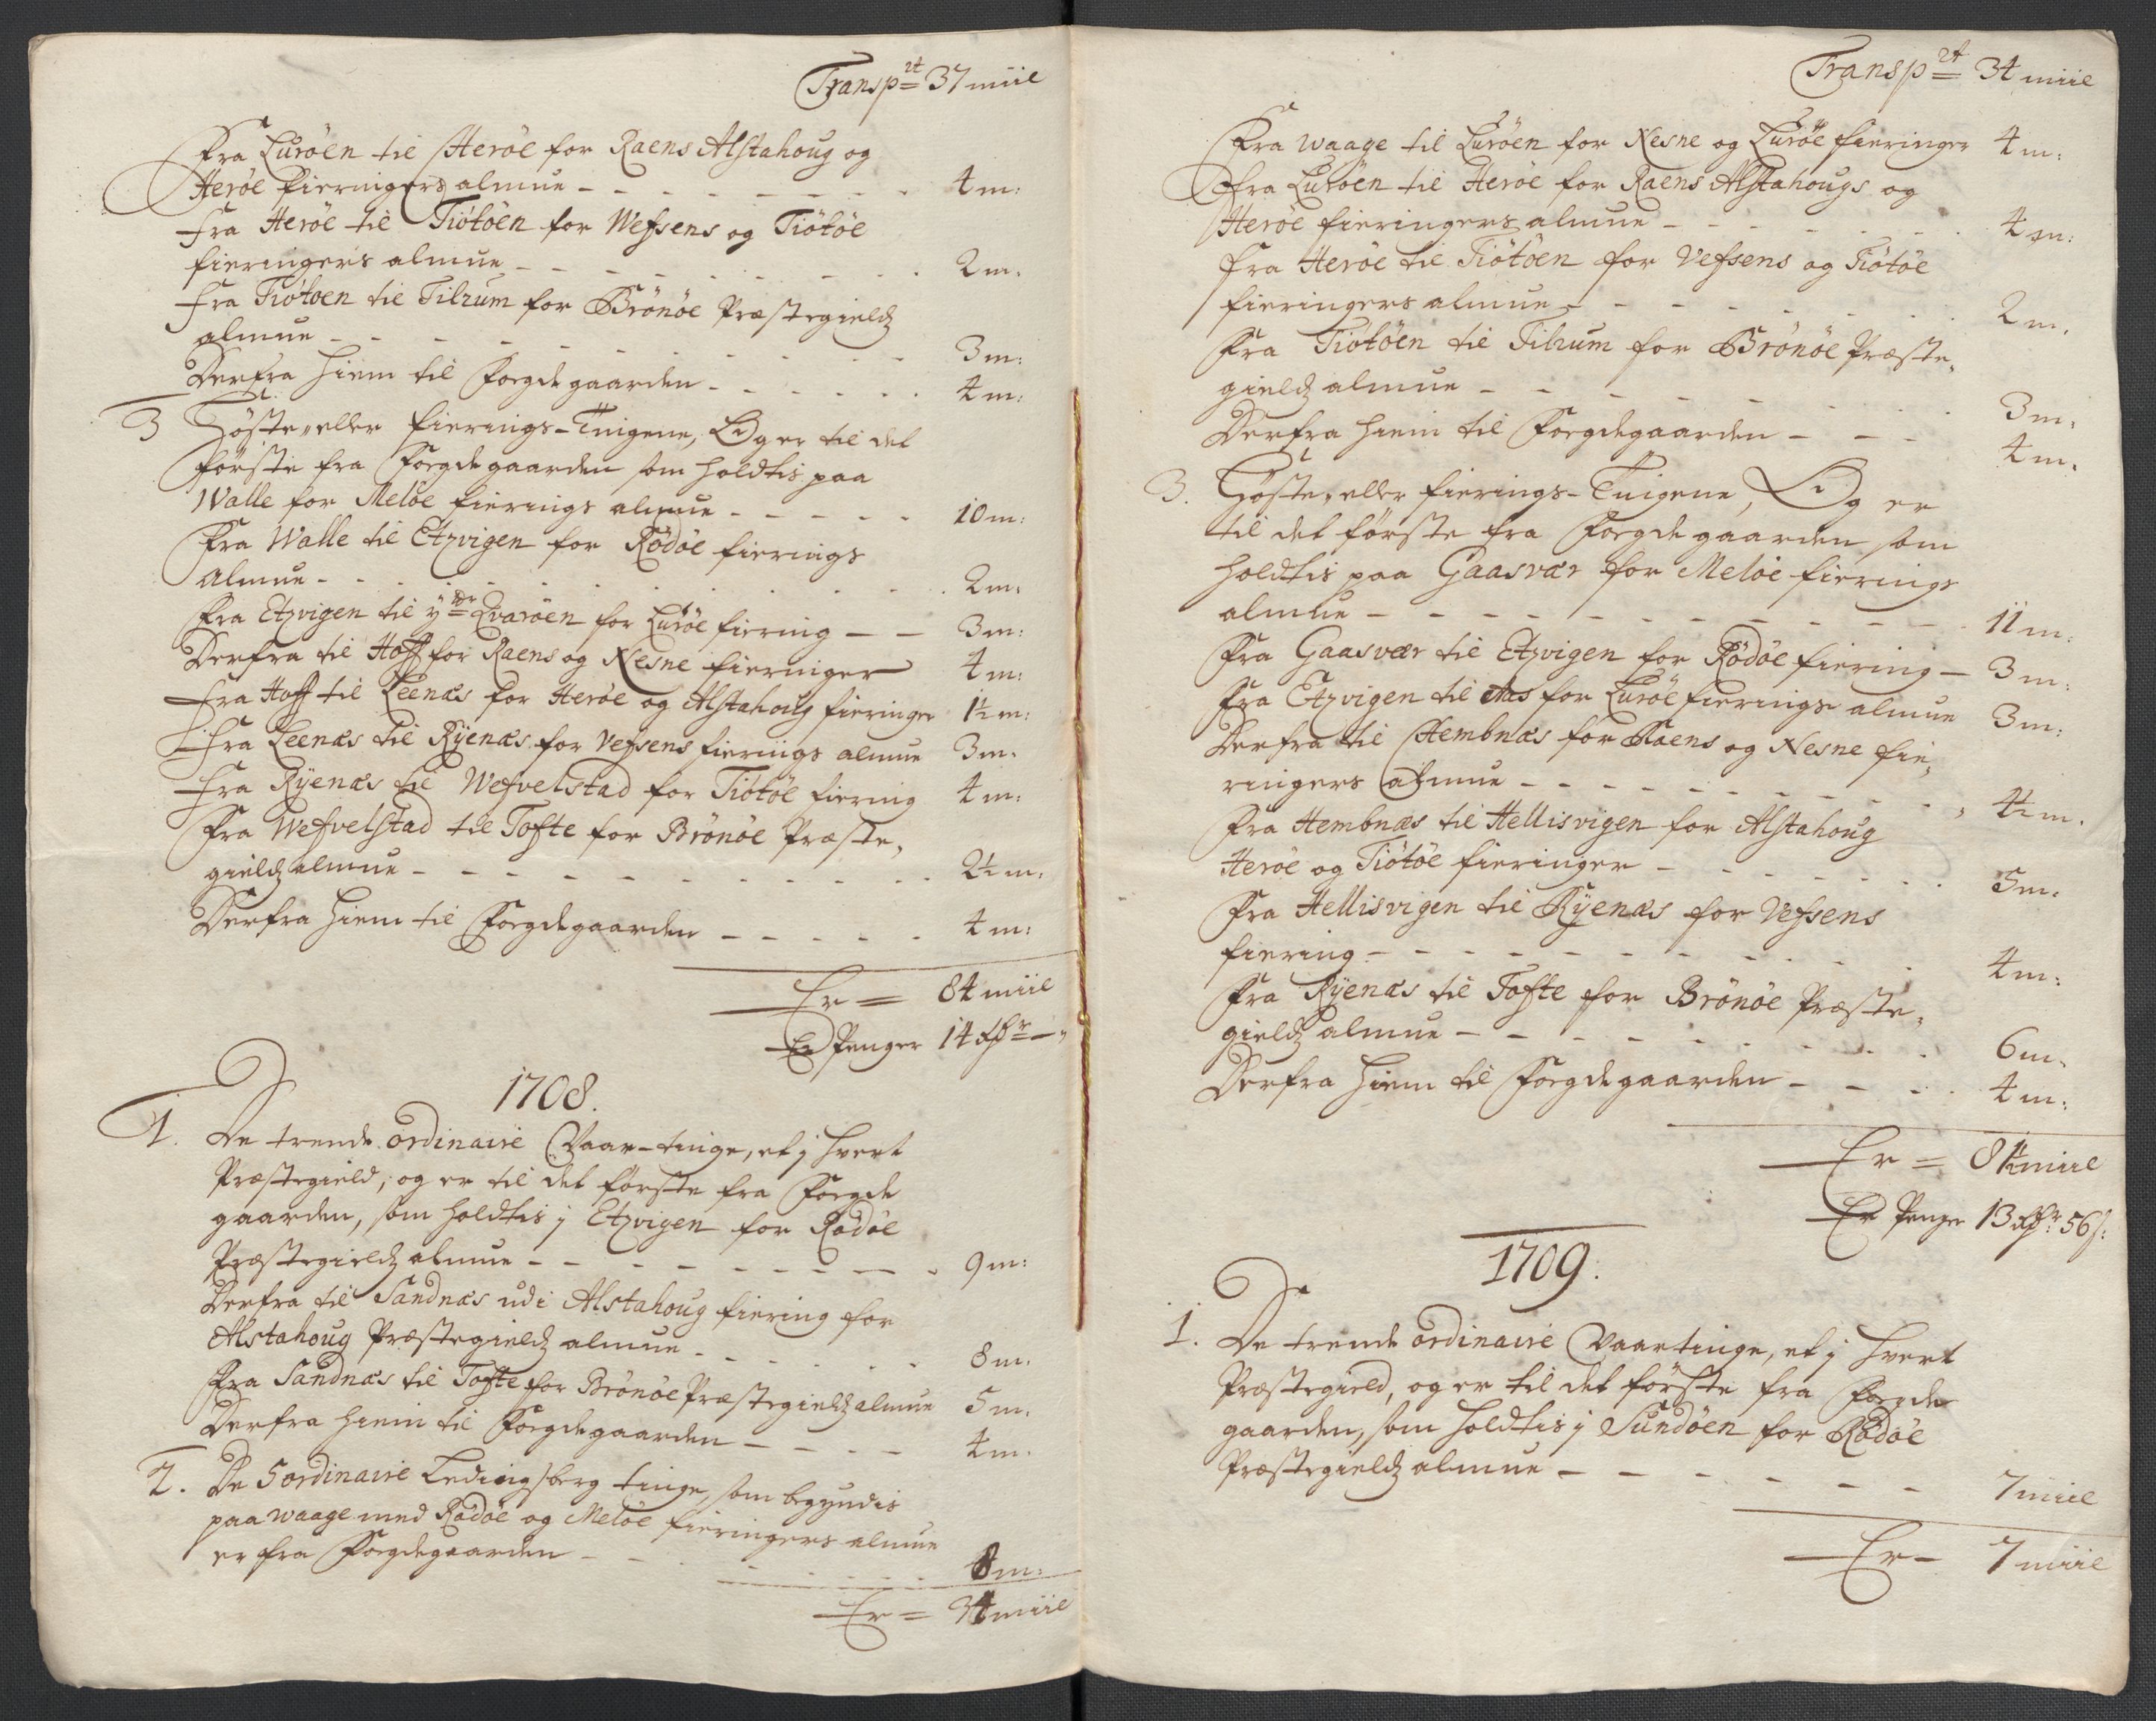 Transp:rt 37 miil
Fra Luröen til Heröe for Raens Alstahoug og
Heröe fieringers almue - - - - - - - 4 m:
Fra Heröe til Tiötöen for Wefsens og Tiötöe
fieringers almue - - - - - - - 2 m:
Fra Tiötöen til Tilrum for Brönöe Præstegieldz
almue - - - - - - - - - 3 m:
Derfra hiem til Fogdegaarden - - - - - 4 m:
3 Höste, eller fierings-Tingene, Og er til det
förste fra Fogdegaarden som holdtis paa
Walle for Melöe fierings almue - - - - - 10 m:
Fra Walle til Etzvigen for Rödöe fierings
Almue - - - - - - - - - 2 m:
Fra Etzvigen til ÿdr Qvaröen for Luröe fiering - - 3 m:
Derfra til Hoff for Raens og Nesne fieringer 4 m:
Fra Hoff til Leenæs for Heröe og Alstahoug fieringer 1½ m:
Fra Leenæs til Rÿenæs for Vefsens fierings almue 3 m:
Fra Rÿenæs til Wefvelstad for Tiötöe fiering 4 m:
Fra Wefvelstad til Tofte for Brönöe Præste,
gieldz almue - - - - - - - - - 2½ m:
Derfra hiem til Fogdegaarden - - - - - 4 m:
Er = 84 miil
Er Penger 14 rdr - „
1708.
1. De trende ordinaire Vaar-tinge, et j hvert
Præstegield, og er til det förste fra Fogde
gaarden, som holdtis j Etzvigen for Rödöe
Præstegieldz almue - - - - - - - - 9 m:
Derfra til Sandnæs udi Alstahoug fiering for
Alstahoug Præstegieldz almue - - - - - 8 m:
Fra Sandnæs til Tofte for Brönöe Præstegieldz almue 5 m:
Derfra hiem til Fogdegaarden - - - - 4 m:
2. De 5 ordinaire Ledingsberg tinge, som begyndis
paa waage med Rödöe og Melöe fieringers almue
er fra Fogdegaarden - - - - - - 8 m:
Er = 34 miil
Transp:rt 34 miil
Fra waage til Luröen for Nesne og Luröe fieringer 4 m:
Fra Luröen til Heröe for Raens Alstahougs og
Heröe fieringers almue - - - - - - 4 m:
Fra Heröe til Tiötöen for Vefsens og Tiötöe
fieringers almue - - - - - - - 2 m:
Fra Tiötöen til Tilrum for Brönöe Præste,
gieldz almue - - - - - - - - 3 m:
Derfra hiem til Fogdegaarden - - - 4 m:
3. Höste, eller fierings-Tingene, Og er
til det förste fra Fogdegaarden som
holdtis paa Gaasvær for Melöe fierings
almue - - - - - - - - - - 11 m:
Fra Gaasvær til Etzvigen for Rödöe fiering - 3 m:
Fra Etzvigen til Aas for Luröe fierings almue 3 m:
Derfra til Hembnæs for Raens og Nesne fie,
ringers almue - - - - - - - - 4½ m:
Fra Hembnæs til Hellisvigen for Alstahoug
Heröe og Tiötöe fieringer - - - - - - 5 m:
Fra Hellisvigen til Rÿenæs for Vefsens
fiering - - - - - - - - - 4 m:
Fra Rÿenæs til Tofte for Brönöe Præste,
gieldz almue - - - - - - - - 6 m:
Derfra hiem til Fogdegaarden - - - - 4 m:
Er = 81½ miil
Er Penge 13 rdr 56 s:
1709.
1. De trende ordinaire Vaartinge, et j hvert
Præstegield, og er til det förste fra Fogde
gaarden, som holdtis j Sundöen for Rödöe
Præstegieldz almue - - - - - - 7 miil
Er - 7 miil